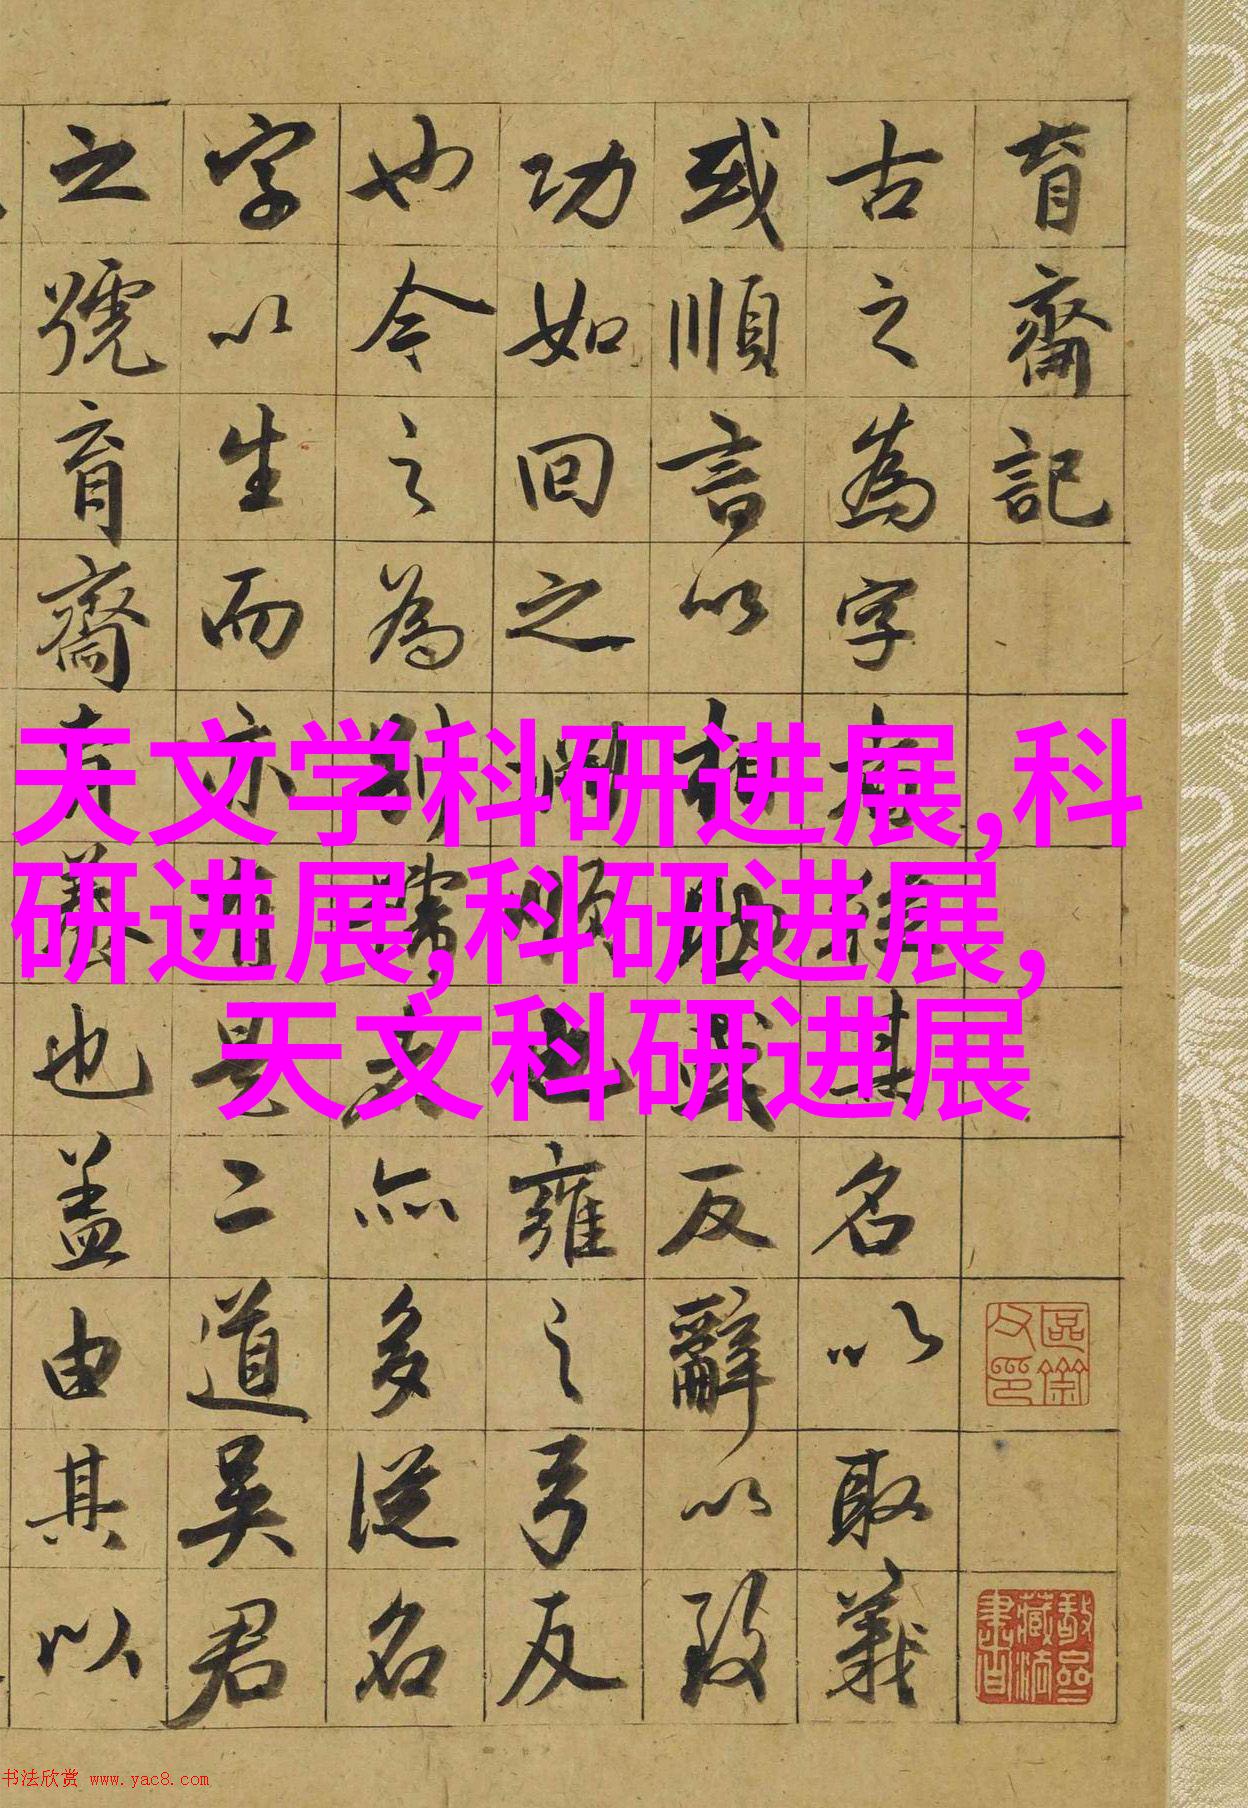 育齋記
古之為字其名以取義
或順言以相或反辭以致
功如回之淵順也雍之弓反
也今之為別亦多從名
字以生而亦有是二道吳君
之號育齋有養也盖由其以
天文学科研进展,科
研进展,科研进展,
天文科研进展
书法欣赏 www.yac8.com